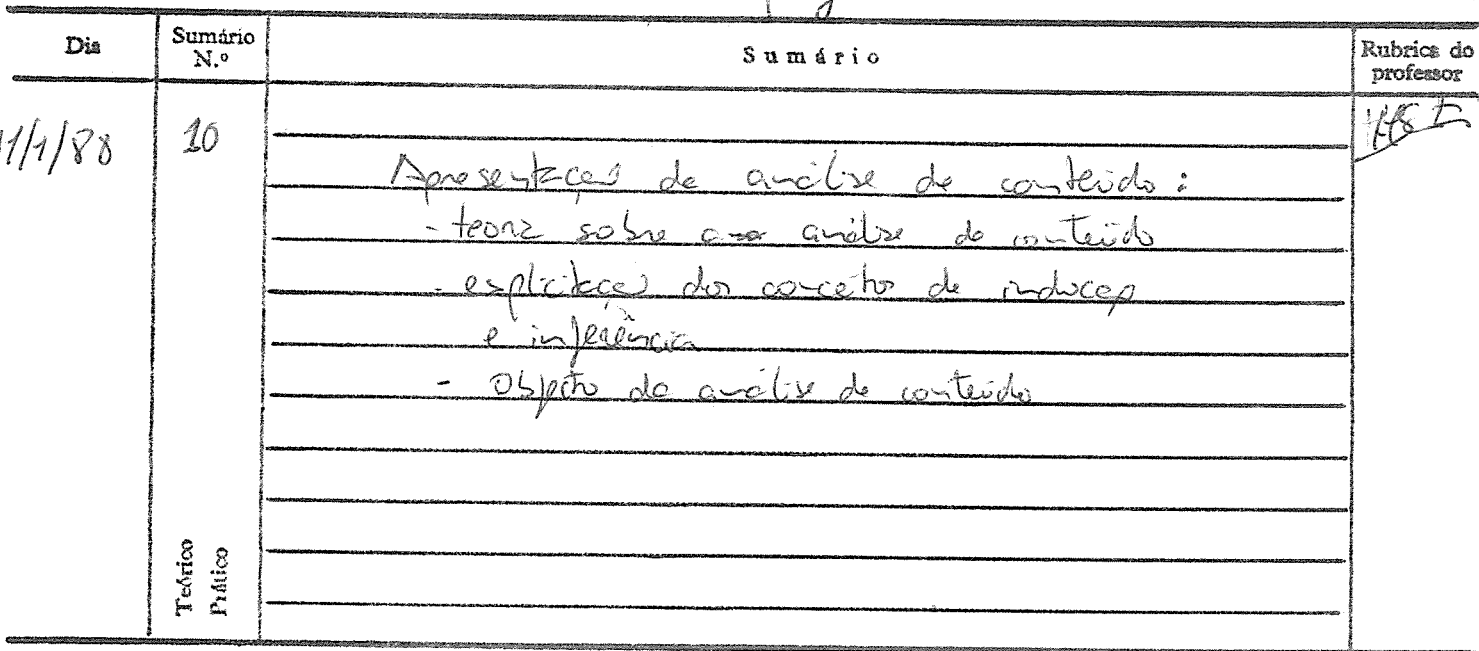 Dia
Sumário N.º
Sumário
Rubrica do professor
1/1/88
10
Apresentação de análise de conteúdo:
- teoria sobre a análise de conteúdo
- explicitação dos conceitos de indução
e inferência
- Objecto da análise de conteúdo
Teórico
Prático